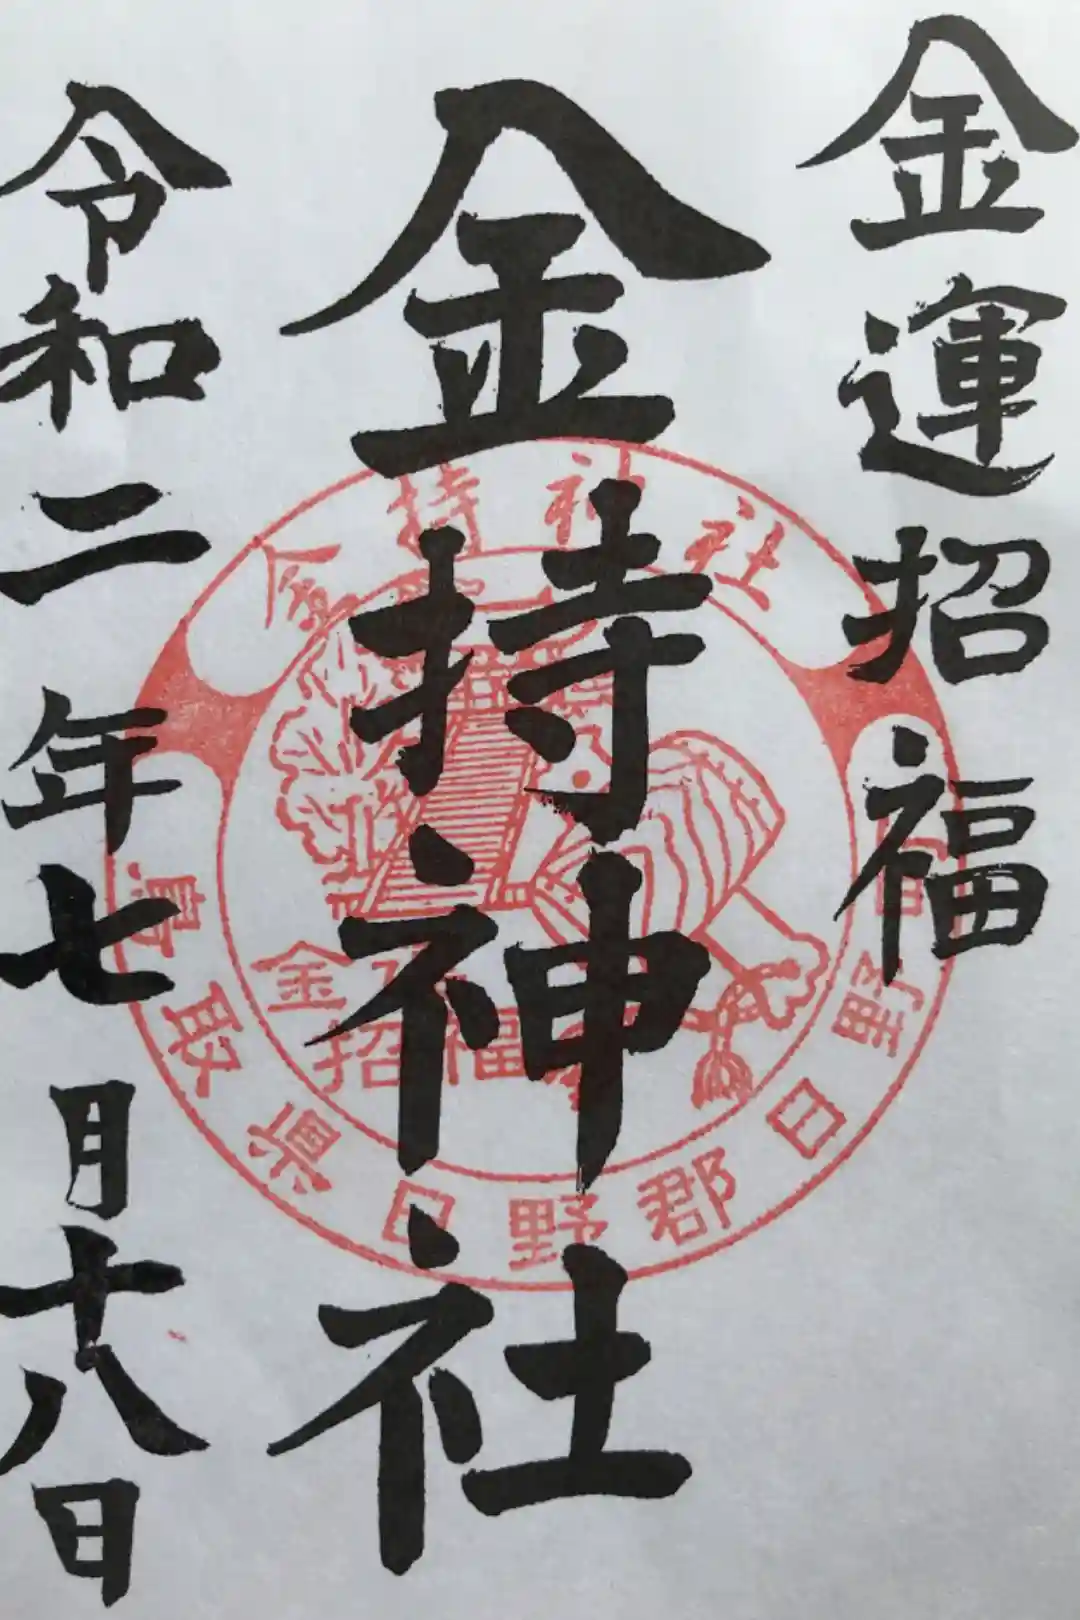 金運招福
金持神社
令和二年七月十八日
金持神社
鳥取県日野郡日野町
金
招福